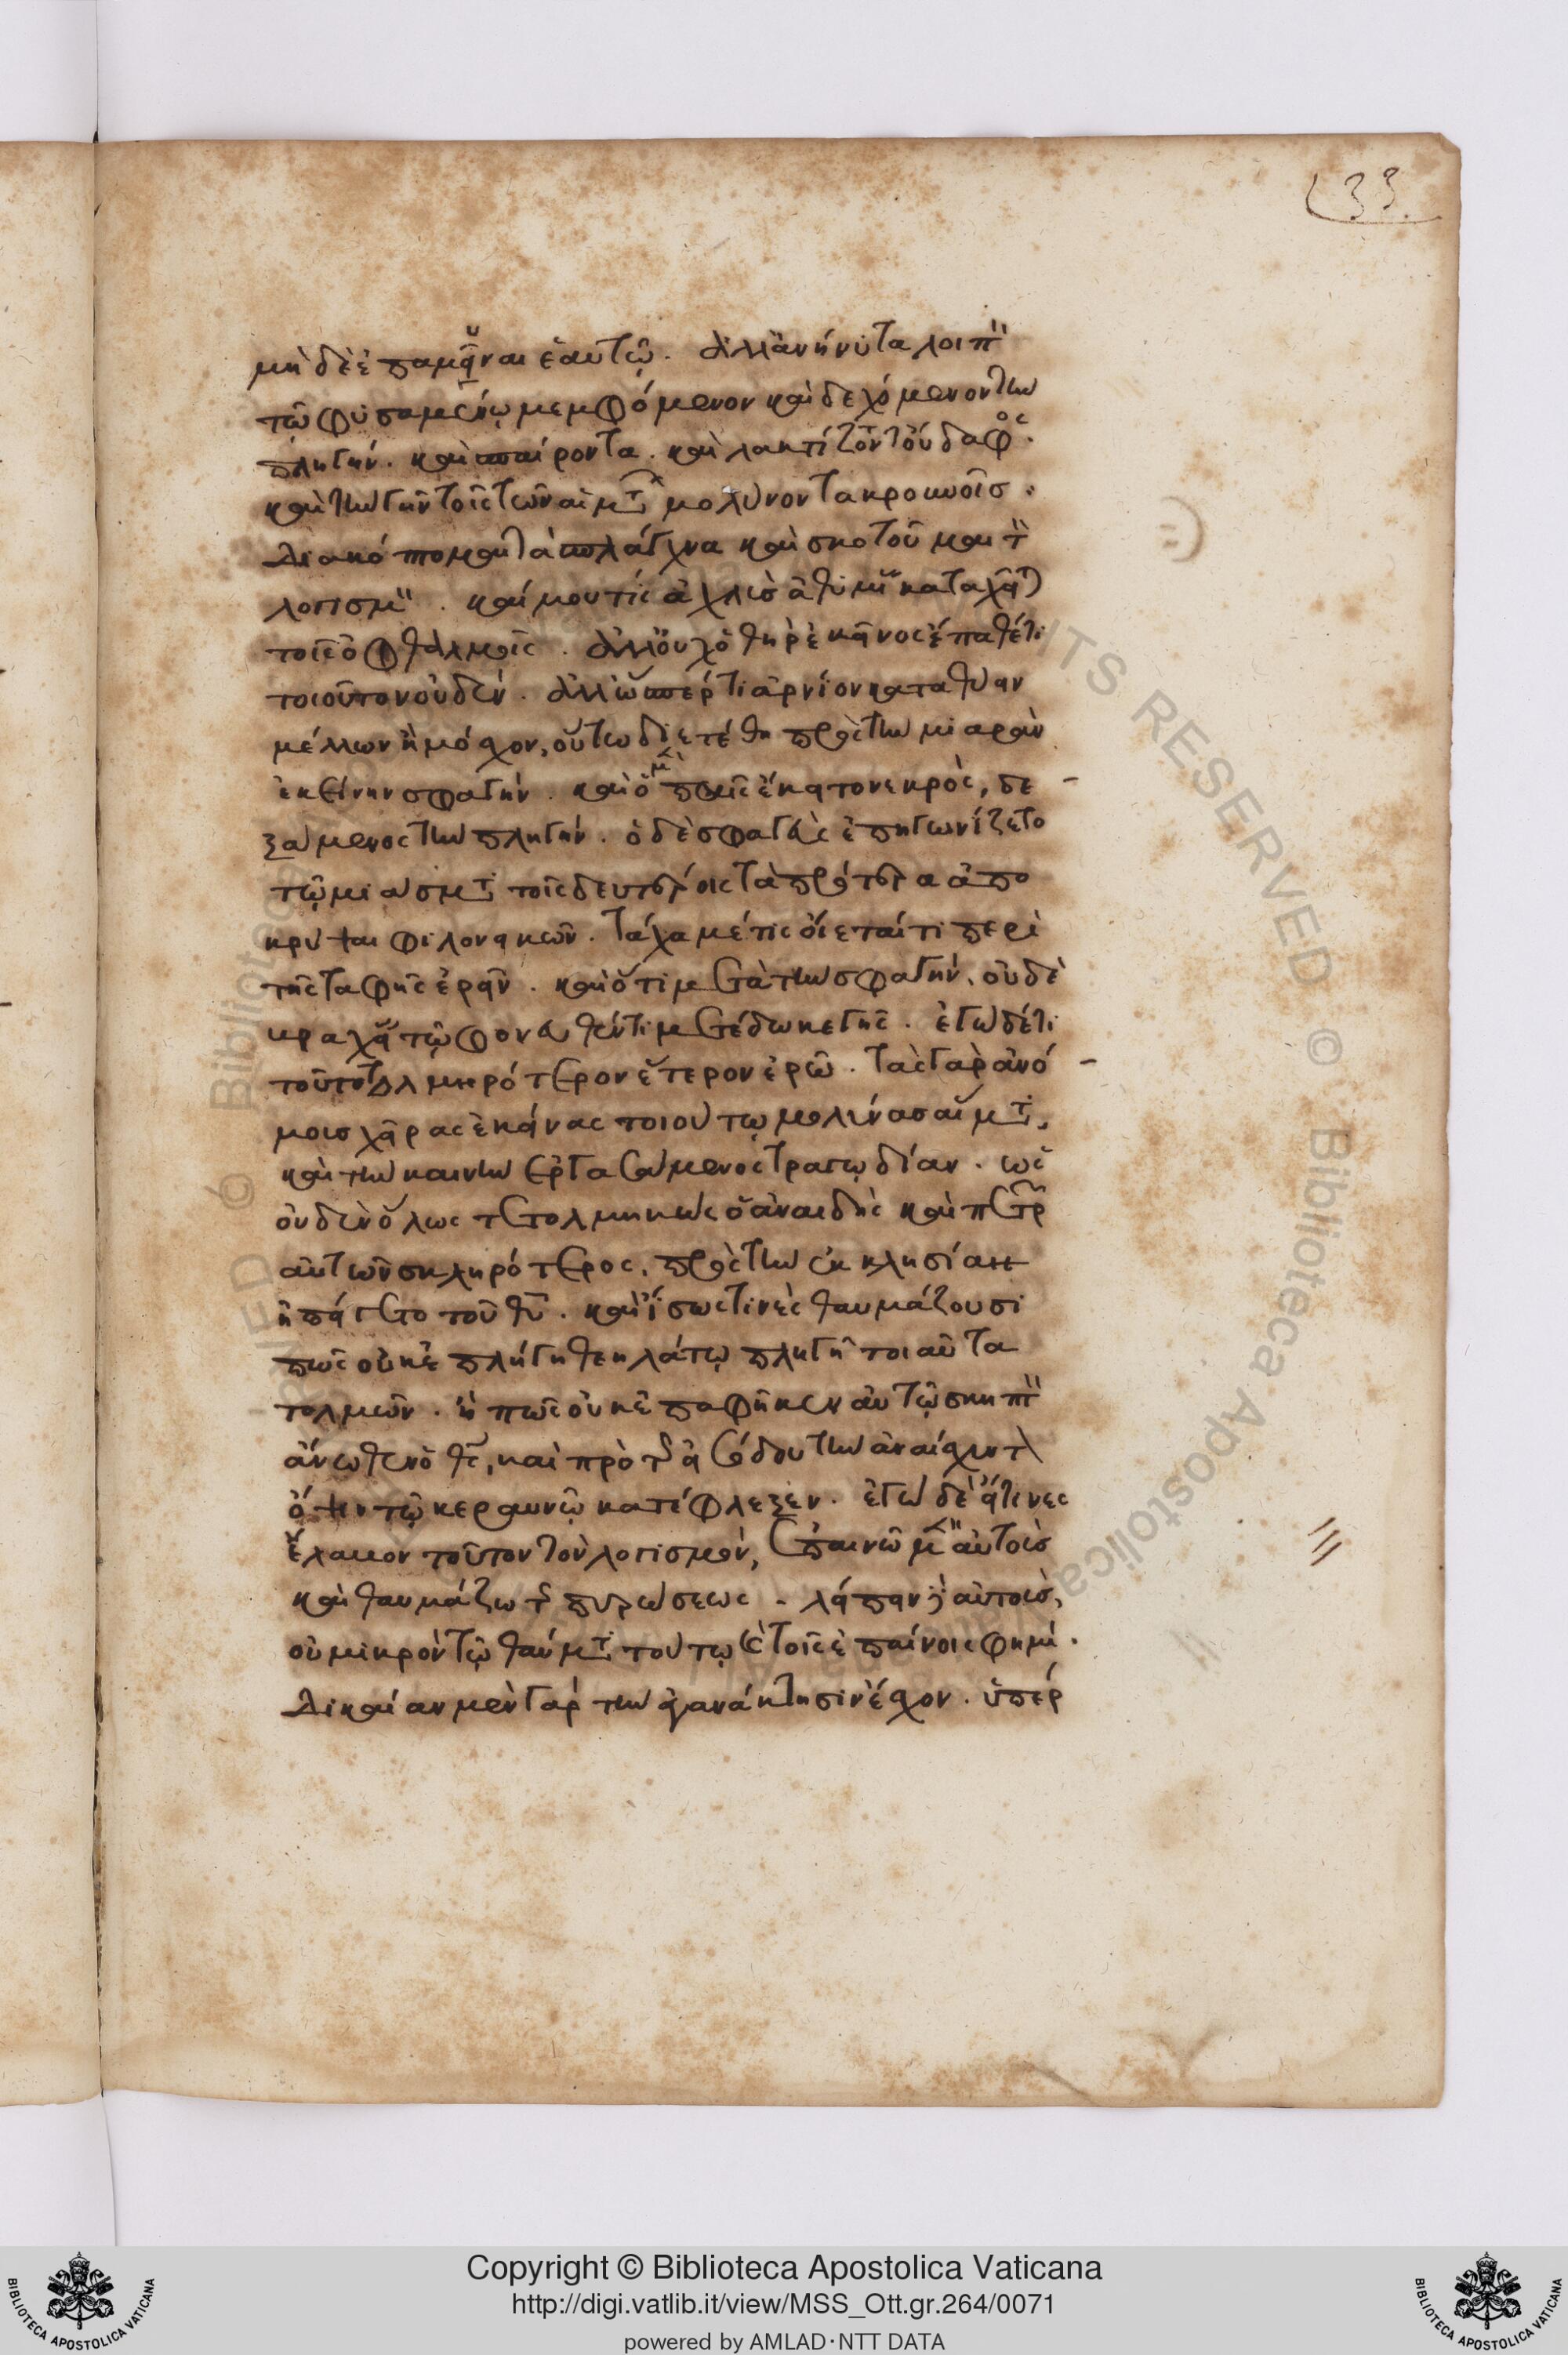 33
μὴ δὲ ἐπαμῦναι ἑαυτῷ. ἀλλ' ἀνήνυτα λοιπ
τῷ φυσαμένῳ μεμφόμενον καὶ δεχόμενον τὴν
πληγήν. καὶ σπαίροντα. καὶ λακτίζοντ τοὔδαφος.
καὶ τὴν γῆν τοῖς τῶν αἱμτ μολύνοντα κρουνοῖς.
διακόπτομαι τὰ σπλάγχνα καὶ σκοτοῦμαι τ
λογισμ. καί μου τίς ἀχλὺς ἀθυμ καταχεῖτ
τοῖς ὀφθαλμοῖς. ἀλλ' οὐχ ὁ θὴρ ἐκεῖνος ἔπαθέ τι
τοιοῦτον οὐδέν. ἀλλ' ὥσπερ τι ἀρνίον καταθύειν
μέλλων ἢ μόσχον, οὕτω διετέθη πρὸς τὴν μιαρὰν
ἐκείνην σφαγήν. καὶ ὁ μ παῖς ἔκειτο νεκρὸς, δε-
ξάμενος τὴν πληγήν. ὁ δὲ σφαγεὺς ἐπηγωνίζετο
τῷ μιάσμτ τοῖς δευτέροις τὰ πρότερα ἀπο
κρύψαι φιλονεικῶν. τάχα μέ τις οἴεταί τι περὶ
τῆς ταφῆς ἐρεῖν. καὶ ὅτι μετὰ τὴν σφαγήν, οὐδὲ
βραχεῖ τῷ φονευθέντι μετέδωκε γῆς. ἐγὼ δέ τι
τούτου τολμηρότερον ἕτερον ἐρῶ. τὰς γὰρ ἀνό-
μους χεῖρας ἐκείνας τοιούτῳ μολύνας αἵμτ,
καὶ τὴν καινὴν ἐργασάμενος τραγῳδίαν. ὡς
οὐδὲν ὅλως τετολμηκὼς ὁ ἀναιδὴς καὶ πετρ
αὐτῶν σκληρότερος, πρὸς τὴν ἐκκλησίαν
ἠπείγετο τοῦ θυ. καὶ ἴσως τινὲς θαυμάζουσι
πῶς οὐκ ἐπλήγη θεηλάτῳ πληγῇ τοιαῦτα
τολμῶν. ἢ πῶς οὐκ ἐπαφῆκεν αὐτῷ σκηπ
ἄνωθεν ὁ θς, καὶ πρὸ τ εἰσόδου τὴν ἀναίσχυντ
ὄψιν τῷ κεραυνῷ κατέφλεξεν. ἐγὼ δὲ εἴ τινες
ἔλαβον τοῦτον τὸν λογισμόν, ἐπαινῶ μ αὐτοὺς
καὶ θαυμάζω τ πυρώσεως. λείπειν δ αὐτοὺς,
οὐ μικρὸν τῷ θαύμτ τούτῳ καὶ τοῖς ἐπαίνοις φημί.
δικαίαν μὲν γὰρ τὴν ἀγανάκτησιν ἔσχον. ὑπὲρ
Copyright © Biblioteca Apostolica Vaticana
http://digi.vatlib.it/view/MSS_Ott.gr.264/0071
powered by AMLAD·NTT DATA